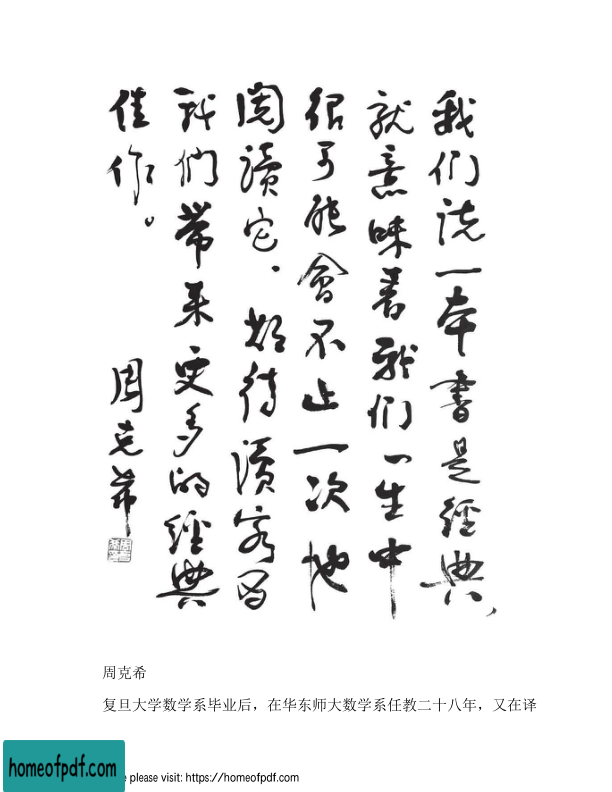 我们说一本書是經典，
就意味着我们一生中
很可能會不止一次地
阅讀它。期待讀客为
我们带来更多的經典
佳作。
周克希
周克希
复旦大学数学系毕业后，在华东师大数学系任教二十八年，又在译
homeofpdf.com
e please visit: https://homeofpdf.com